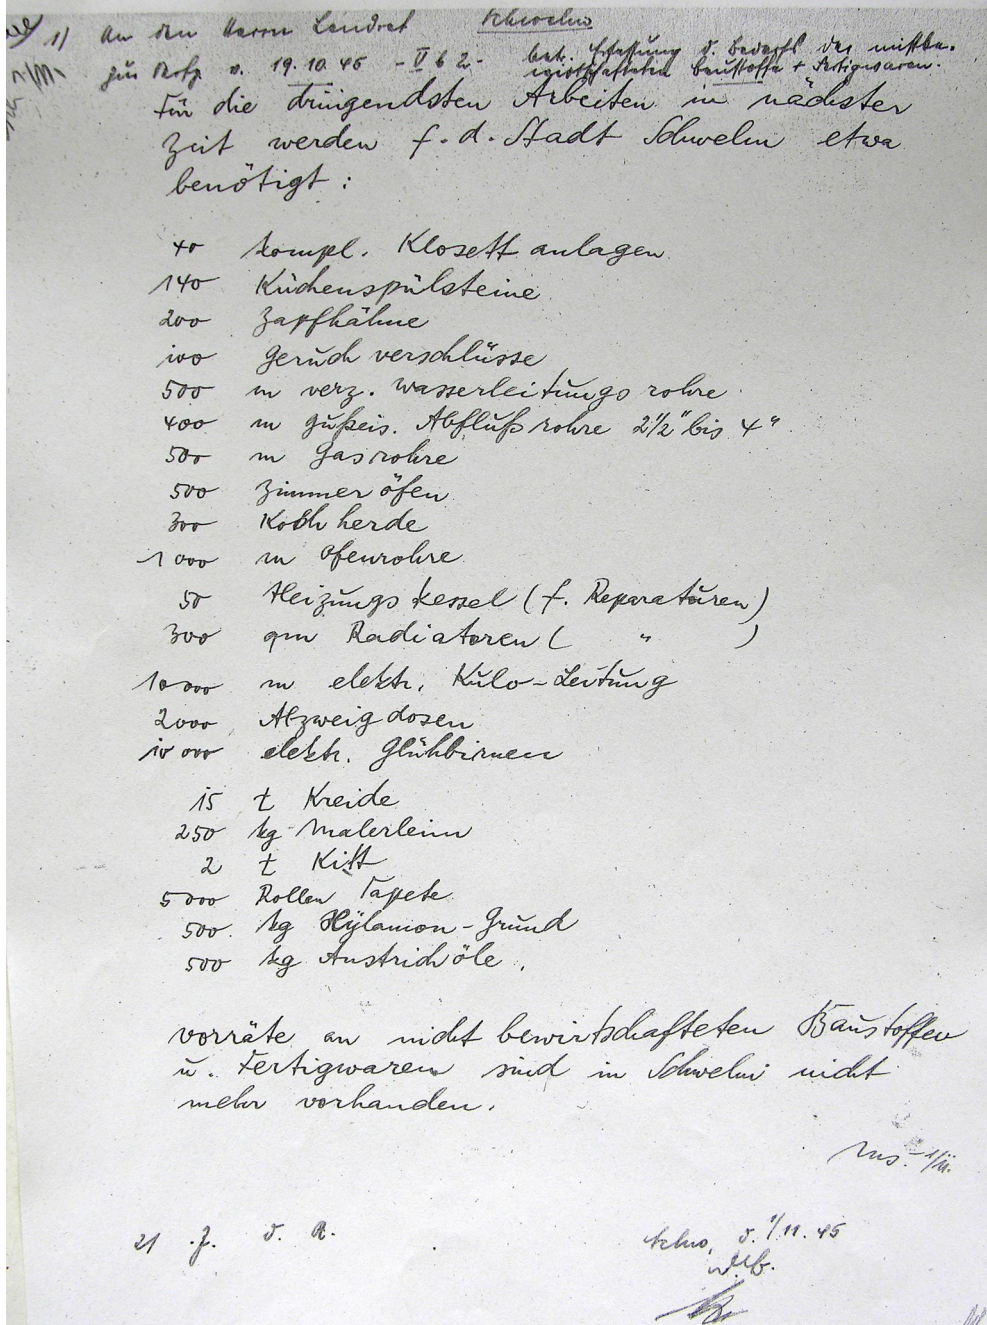 1) An den Herrn Landrat Schwelm
zur Verfg. v. 19.10.45 - V b 2 - betr. Erfassung d. Bedarfs der nichtbe-
wirtschafteten Baustoffe + Fertigwaren.
Für die dringendsten Arbeiten in nächster
Zeit werden f. d. Stadt Schwelm etwa
benötigt:
40 kompl. Klosettanlagen
140 Küchenspülsteine
200 Zapfhähne
100 Geruchverschlüsse
500 m verz. Wasserleitungsrohre
400 m gußeis. Abflußrohre 2 1/2" bis 4"
500 m Gasrohre
500 Zimmeröfen
300 Kochherde
1000 m Ofenrohre
50 Heizungskessel (f. Reparaturen)
300 qm Radiatoren ( " )
10000 m elektr. Kulo-Leitung
2000 Abzweigdosen
10000 elektr. Glühbirnen
15 t Kreide
250 kg Malerleim
2 t Kitt
5000 Rollen Tapete
500 kg Xylamon-Grund
500 kg Anstrichöle.
Vorräte an nicht bewirtschafteten Baustoffen
u. Fertigwaren sind in Schwelm nicht
mehr vorhanden.
2) Z. d. A. Schw., d. 1/11.45